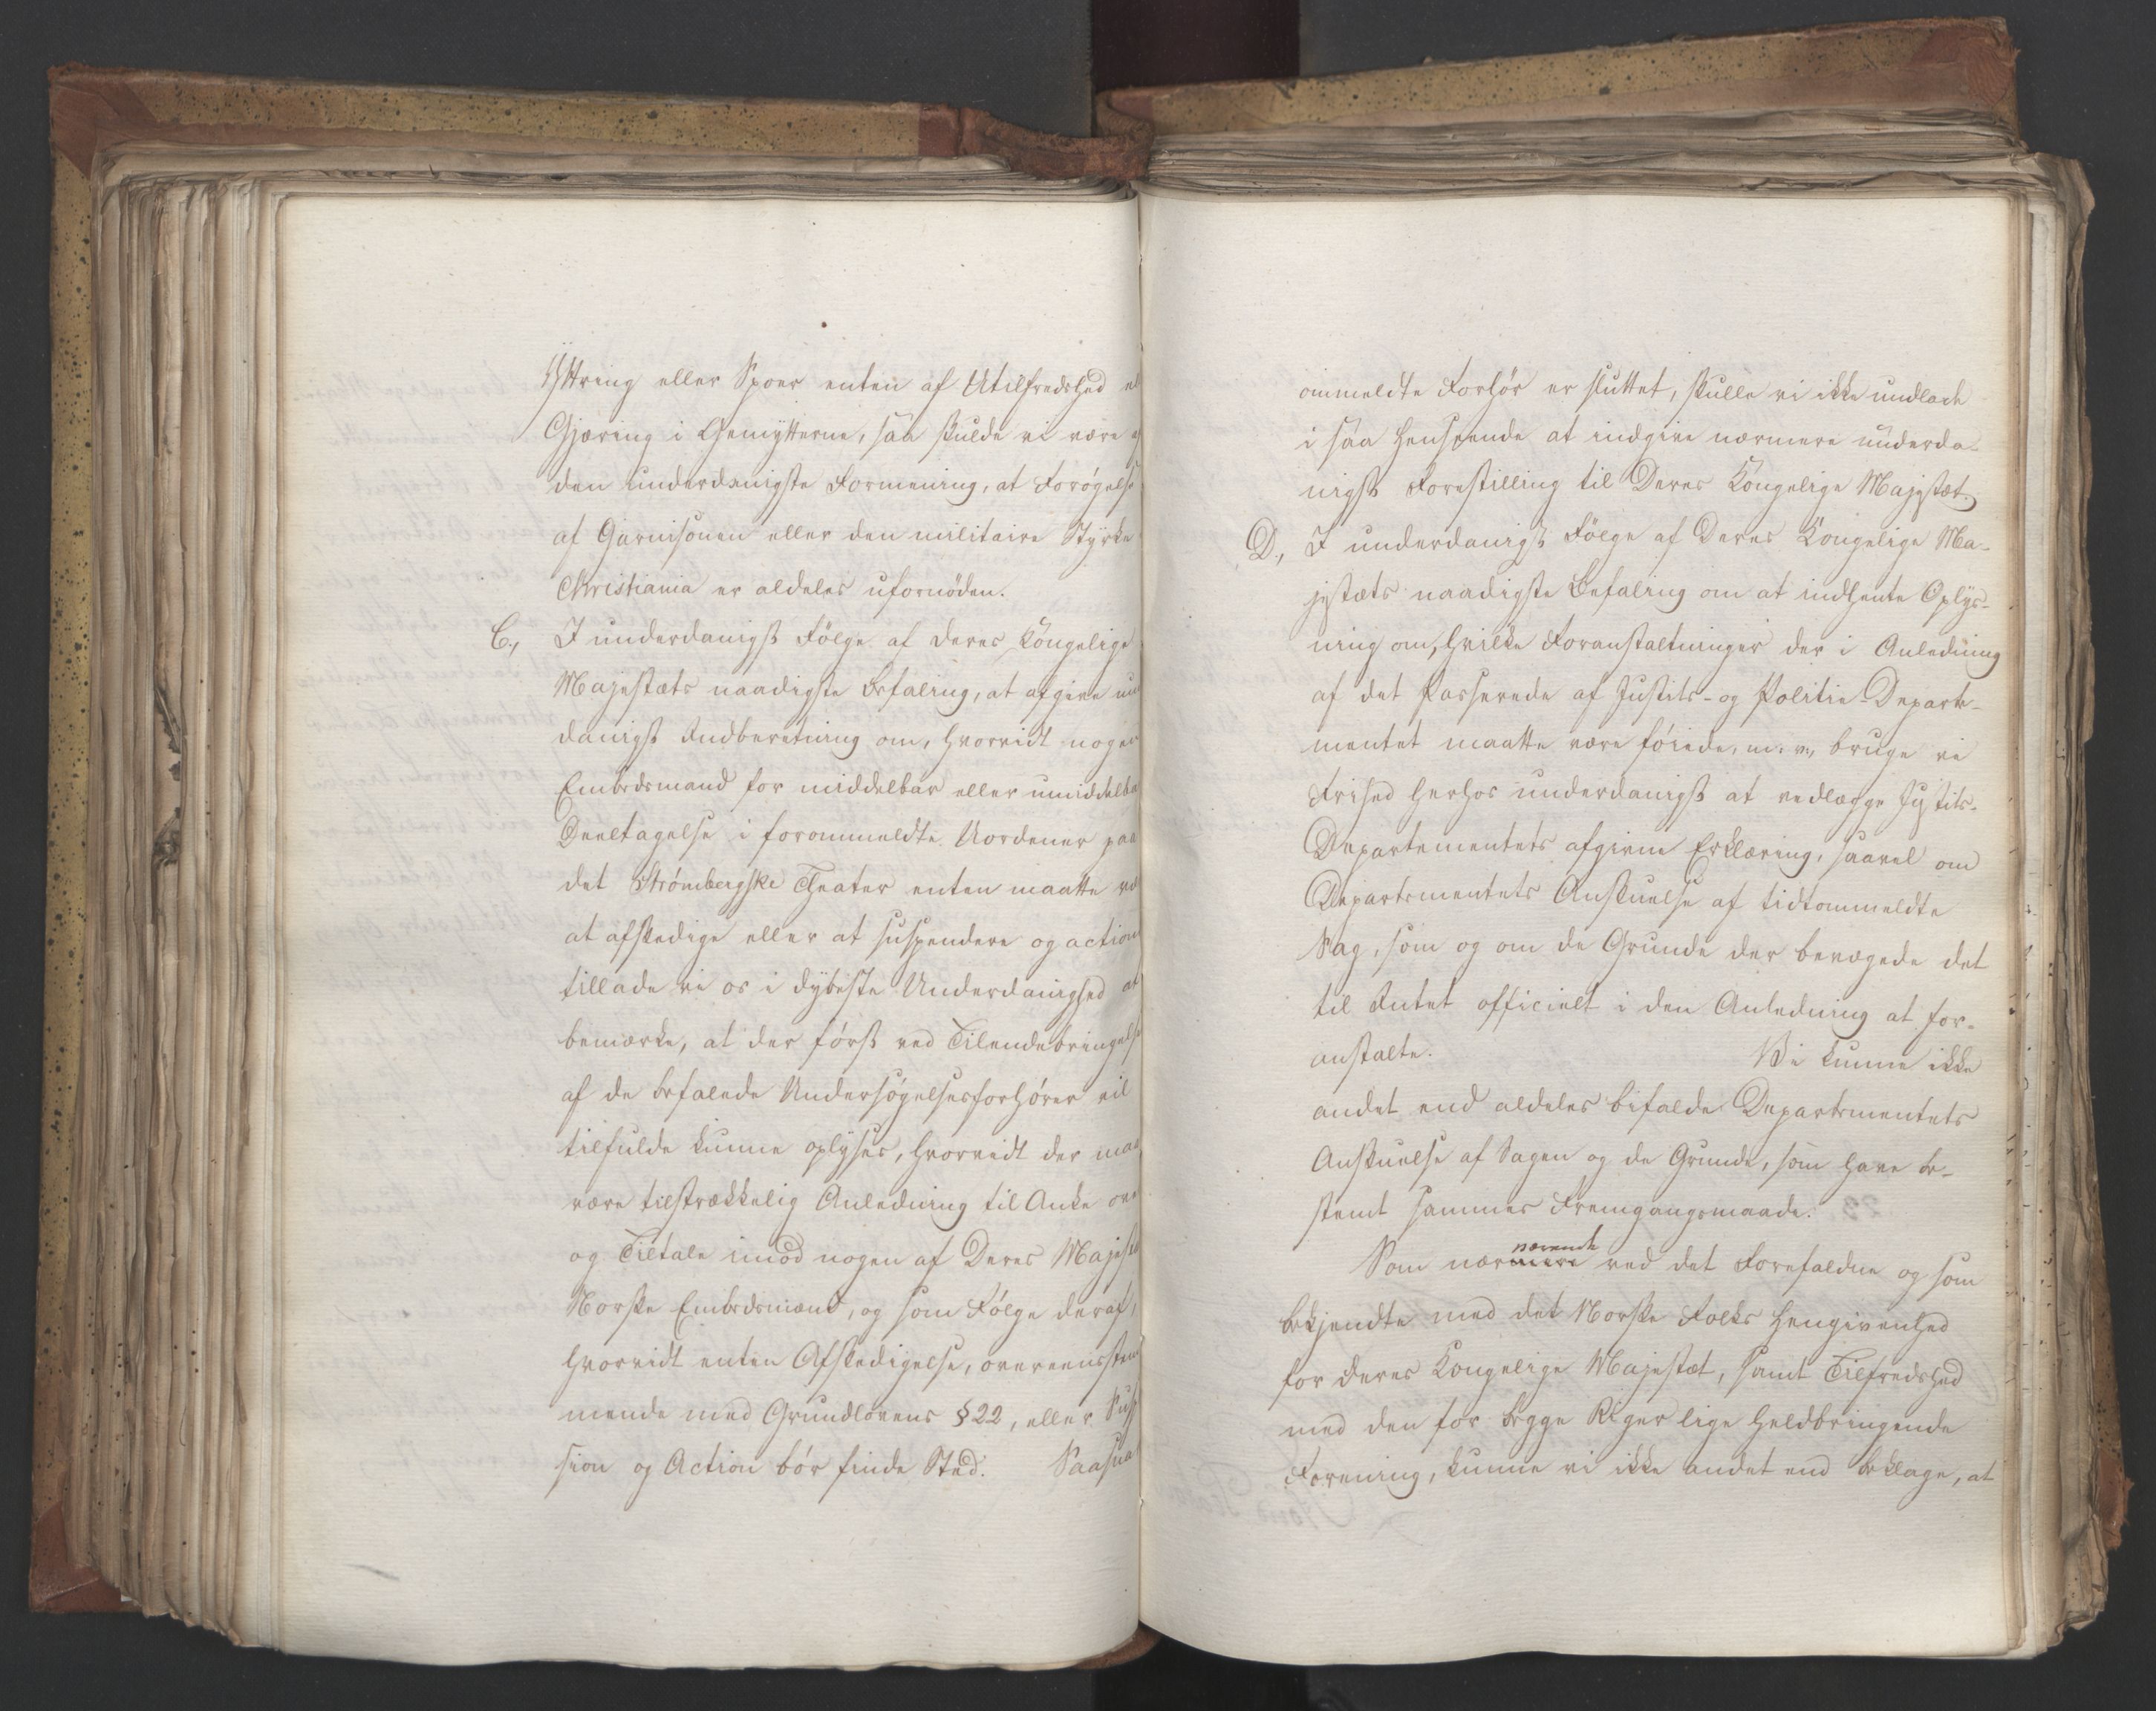 Yttring eller Spoer enten af Utilfredshed el
Gjæring i Gemytterne, saa skulde vi være af
den underdanigste Formening, at Forøgelse
af Garnisonen eller den militaire Styrke
Christiania er aldeles ufornøden.
C., I underdanigst Følge af Deres Kongelige
Majestæts naadigste Befaling, at afgive un
danigst Indberetning om, hvorvidt nogen
Embedsmand for middelbar eller umiddelba
Deeltagelse i forommeldte Uordener paa
det Strømbergske Theater enten maatte væ
at afskedige eller at suspendere og action
tillade vi os i dybeste Underdanighed at
bemærke, at der først ved Tilendebringelse
af de befalede Undersøgelsesforhører vil
tilfulde kunne oplyses, hvorvidt der maa
være tilstrækkelig Anledning til Anke ove
og Tiltale imod nogen af Deres Majestæ
Norske Embedsmænd, og som Følge deraf,
hvorvidt enten Afskedigelse, overeensstem
mende med Grundlovens § 22, eller Susp
sion og Action bør finde Sted. Saasna
ommeldte Forhør er sluttet, skulle vi ikke undlade
i saa Henseende at indgive nærmere underda-
nigst Forestilling til Deres Kongelige Majestæt.
D., I underdanigst Følge af Deres Kongelige Ma-
jestæts naadigste Befaling om at indhente Oplys-
ning om, hvilke Foranstaltninger der i Anledning
af det Passerede af Justits- og Politie-Departe-
mentet maatte være føiede, m. v., bruge vi
Frihed herhos underdanigst at vedlægge Justits-
Departementets afgivne Erklæring, saavel om
Departementets Anskuelse af tidtommeldte
Sag, som og om de Grunde der bevægede det
til Intet officielt i den Anledning at for-
anstalte. Vi kunne ikke
andet end aldeles bifalde Departementets
Anskuelse af Sagen og de Grunde, som have be-
stemt sammes Fremgangsmaade.
Som nærværende ved det Forefaldne og som
bekjendte med det Norske Folks Hengivenhed
for Deres Kongelige Majestæt, samt Tilfredshed
med den for begge Riger lige Heldbringende
Forening, kunne vi ikke andet end beklage, at